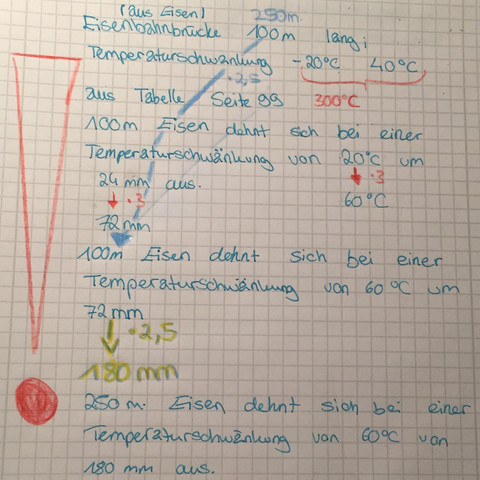 (aus Eisen) 250m.
Eisenbahnbrücke 100m lang;
Temperaturschwänkung -20°C 40°C
·2,5
aus Tabelle Seite 99 300°C
100m Eisen dehnt sich bei einer
Temperaturschwänkung von 20°C um
24 mm aus. ·3
·3 60°C
72 mm
100m Eisen dehnt sich bei einer
Temperaturschwänkung von 60°C um
72 mm
·2,5
180 mm
250 m. Eisen dehnt sich bei einer
Temperaturschwänkung von 60°C von
180 mm aus.